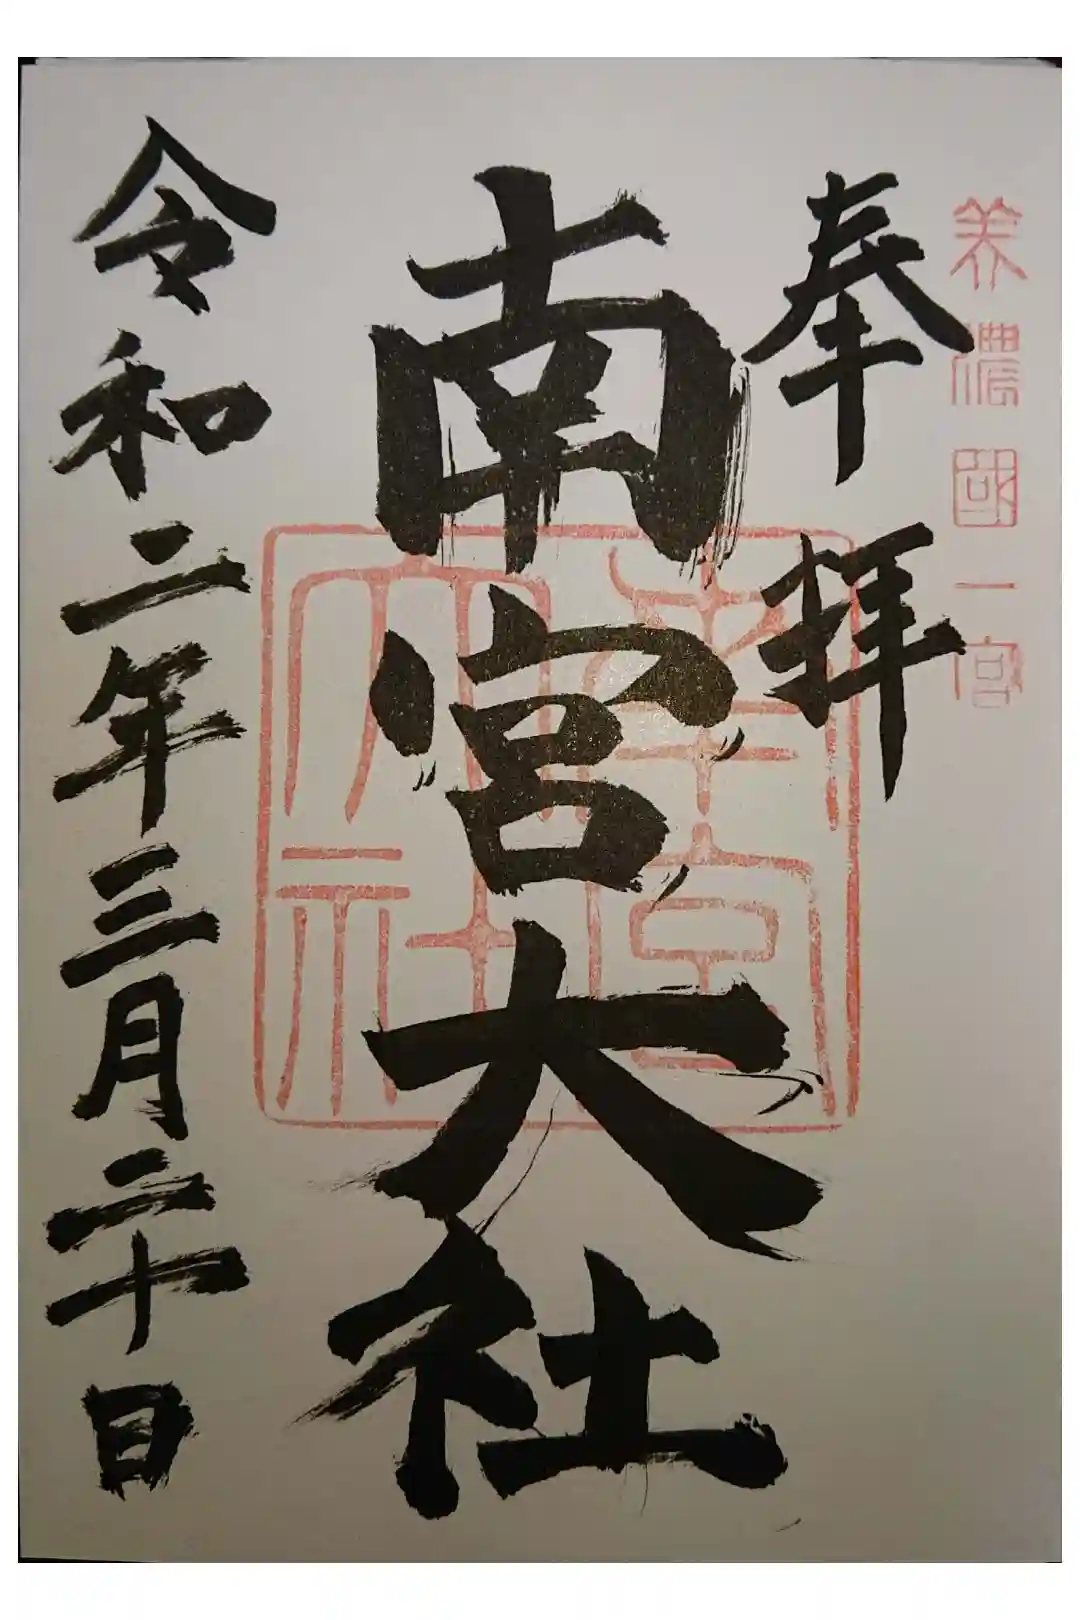 美濃國一宮
奉拝
南宮大社
南宮大社
令和二年三月二十日